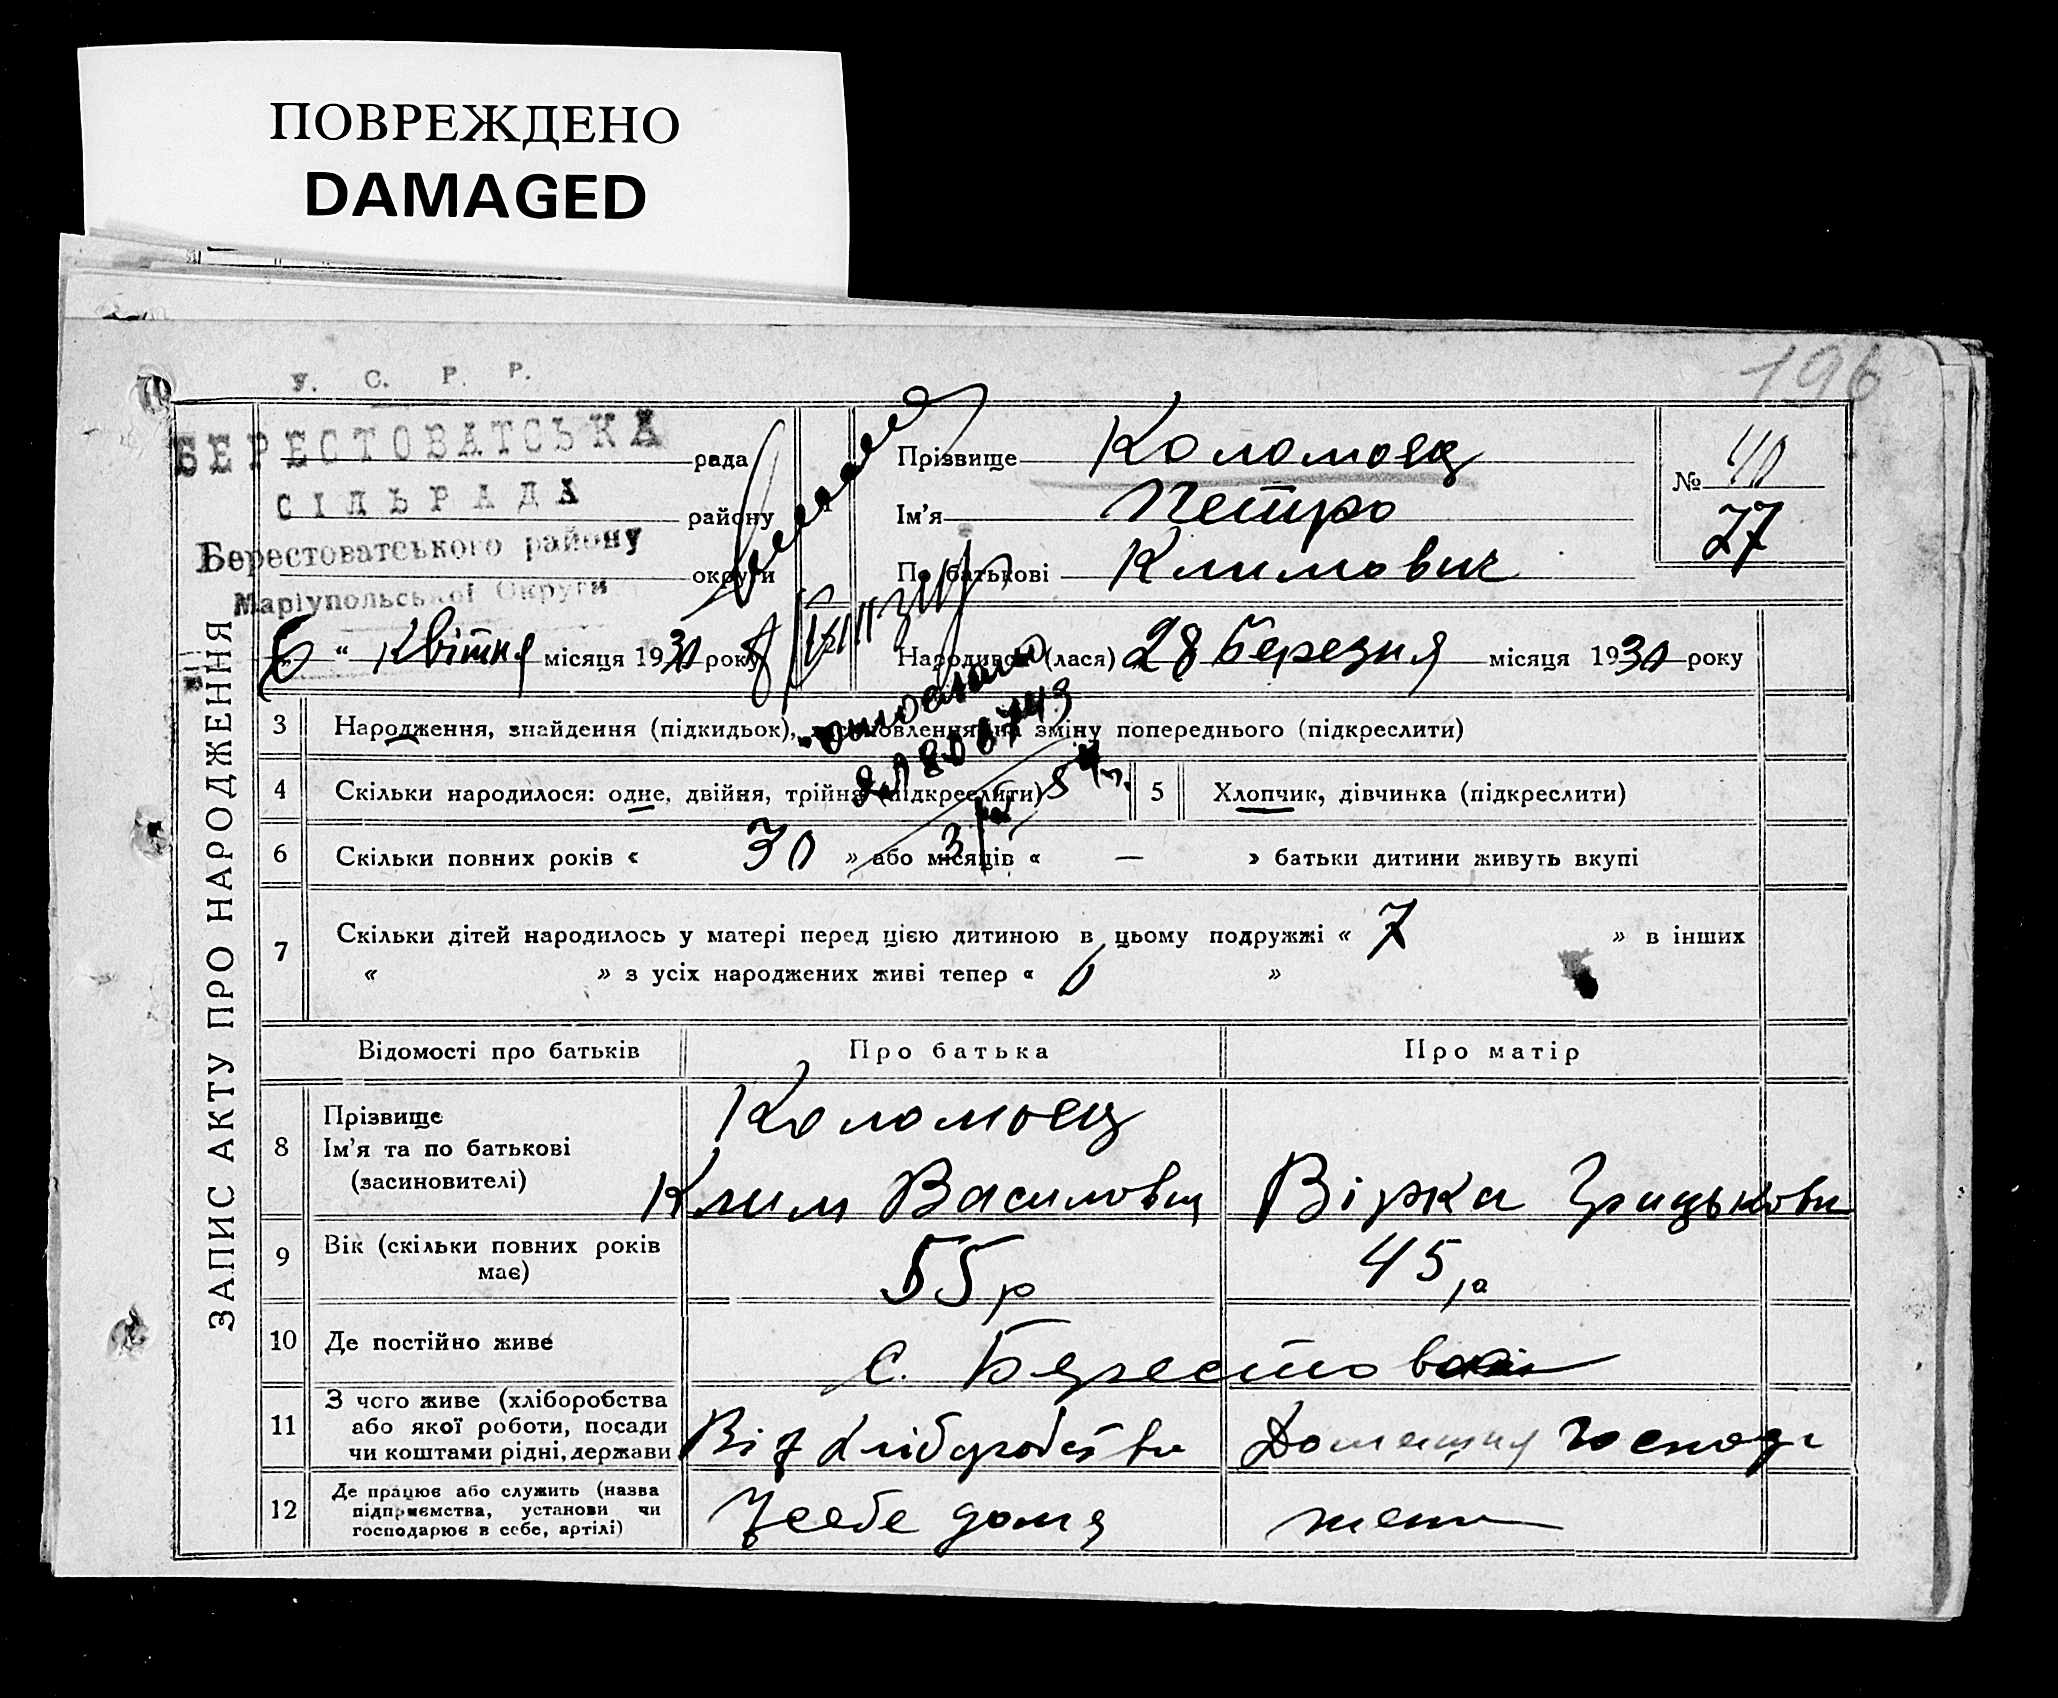 ПОВРЕЖДЕНО
DAMAGED
196
У. С. Р. Р.
БЕРЕСТОВАТСЬКА
рада
СІЛЬРАДА
району
Берестоватського району
округи
Маріупольської Округи
6 “ Квітня місяця 1930 року
Прізвище Коломоец
Ім'я Петро
По батькові Климович
№ 40
27
Народився (лася) 28 Березня місяця 1930 року
ЗАПИС АКТУ ПРО НАРОДЖЕННЯ
3 Народження, знайдення (підкидьок), зміну попереднього (підкреслити)
4 Скільки народилося: одне, двійня, трійня (підкреслити) 5 Хлопчик, дівчинка (підкреслити)
6 Скільки повних років « 30 » або місяців « — » батьки дитини живуть вкупі
7 Скільки дітей народилось у матері перед цією дитиною в цьому подружжі « 7 » в інших
« » з усіх народжених живі тепер « »
Відомості про батьків Про батька Про матір
8 Прізвище
Ім'я та по батькові
(засиновителі)
Коломоец
Клим Василович
Вірка Грицькови
9 Вік (скільки повних років
має)
55 р
45 р
10 Де постійно живе
с. Берестова
11 З чого живе (хліборобства
або якої роботи, посади
чи коштами рідні, держави
Від хліборобства
Домашня господ
12 Де працює або служить (назва
підприємства, установи чи
господарює в себе, артілі)
У себе дома